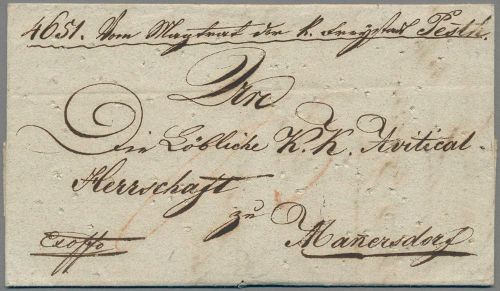 4651. Vom Magtrat der k. Freystadt Pesth.
An
Die Löbliche K. K. Avitical-
Herrschaft
zu
Manersdorf
Exoffo